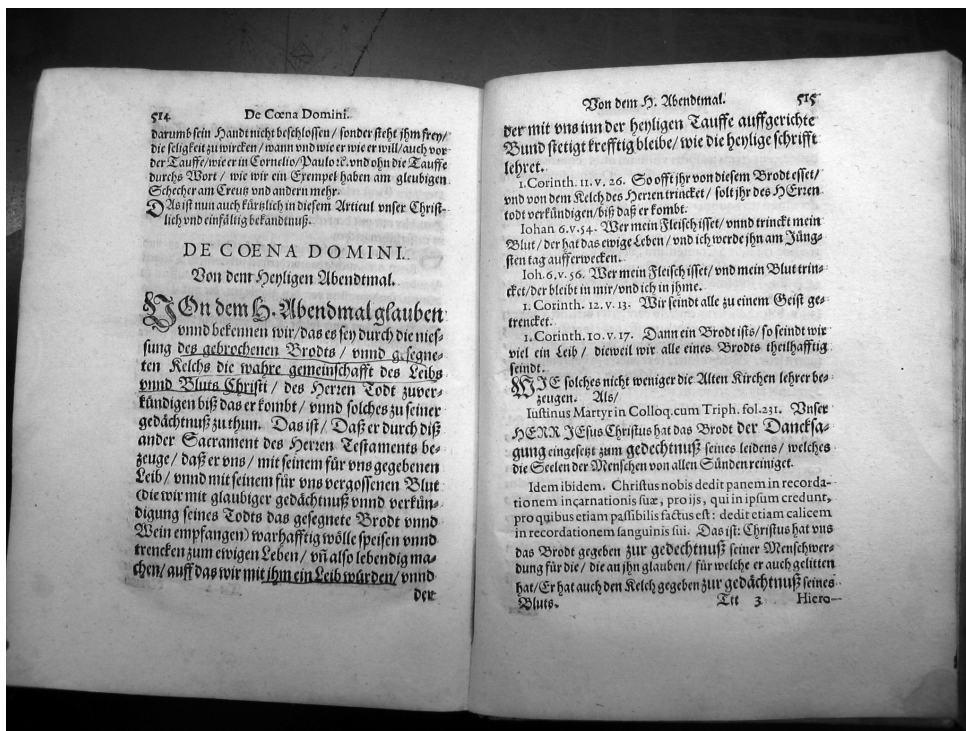 514 De Cœna Domini.
darumb sein Handt nicht beschlossen / sonder steht jhm frey /
die seligkeit zu wircken / wann vnd wie er wie er will / auch vor
der Tauffe / wie er in Cornelio / Paulo ꝛc. vnd ohn die Tauffe
durchs Wort / wie wir ein Exempel haben am gleubigen
Schecher am Creutz vnd andern mehr.
DAs ist nun auch kürtzlich in diesem Articul vnser Christ-
lich vnd einfältig bekandtnuß.
DE COENA DOMINI.
Von dem Heyligen Abendtmal.
VOn dem H. Abendmal glauben
vnnd bekennen wir / das es sey durch die nies-
sung des gebrochenen Brodts / vnnd gesegne-
ten Kelchs die wahre gemeinschafft des Leibs
vnnd Bluts Christi / des Herren Todt zuver-
kündigen biß das er kombt / vnnd solches zu seiner
gedächtnuß zu thun. Das ist / Daß er durch diß
ander Sacrament des Herren Testaments be-
zeuge / daß er vns / mit seinem für vns gegebenen
Leib / vnnd mit seinem für vns vergossenen Blut
(die wir mit glaubiger gedächtnuß vnnd verkün-
digung seines Todts das gesegnete Brodt vnnd
Wein empfangen) warhafftig wölle speisen vnnd
trencken zum ewigen Leben / vñ also lebendig ma-
chen / auff das wir mit ihm ein Leib würden / vnnd
der
Von dem H. Abendtmal. 515
der mit vns inn der heyligen Tauffe auffgerichte
Bund stetigt krefftig bleibe / wie die heylige schrifft
lehret.
1. Corinth. 11. v. 26. So offt jhr von diesem Brodt esset /
vnd von dem Kelch des Herren trincket / solt jhr des HErren
todt verkündigen / biß daß er kombt.
Iohan 6. v. 54. Wer mein Fleisch isset / vnnd trinckt mein
Blut / der hat das ewige Leben / vnd ich werde jhn am Jüng-
sten tag aufferwecken.
Ioh. 6. v. 56. Wer mein Fleisch isset / vnd mein Blut trin-
cket / der bleibt in mir / vnd ich in jhme.
1. Corinth. 12. v. 13. Wir seindt alle zu einem Geist ge-
trencket.
1. Corinth. 10. v. 17. Dann ein Brodt ists / so seindt wir
viel ein Leib / dieweil wir alle eines Brodts theilhafftig
seindt.
WIE solches nicht weniger die Alten Kirchen lehrer be-
zeugen. Als /
Iustinus Martyr in Colloq. cum Triph. fol. 231. Vnser
HERR JEsus Christus hat das Brodt der Dancksa-
gung eingesetzt zum gedechtnuß seines leidens / welches
die Seelen der Menschen von allen Sünden reiniget.
Idem ibidem. Christus nobis dedit panem in recorda-
tionem incarnationis suæ, pro ijs, qui in ipsum credunt,
pro quibus etiam passibilis factus est: dedit etiam calicem
in recordationem sanguinis sui. Das ist: Christus hat vns
das Brodt gegeben zur gedechtnuß seiner Menschwer-
dung für die / die an jhn glauben / für welche er auch gelitten
hat / Er hat auch den Kelch gegeben zur gedächtnuß seines
Bluts. Ttt 3 Hiero-